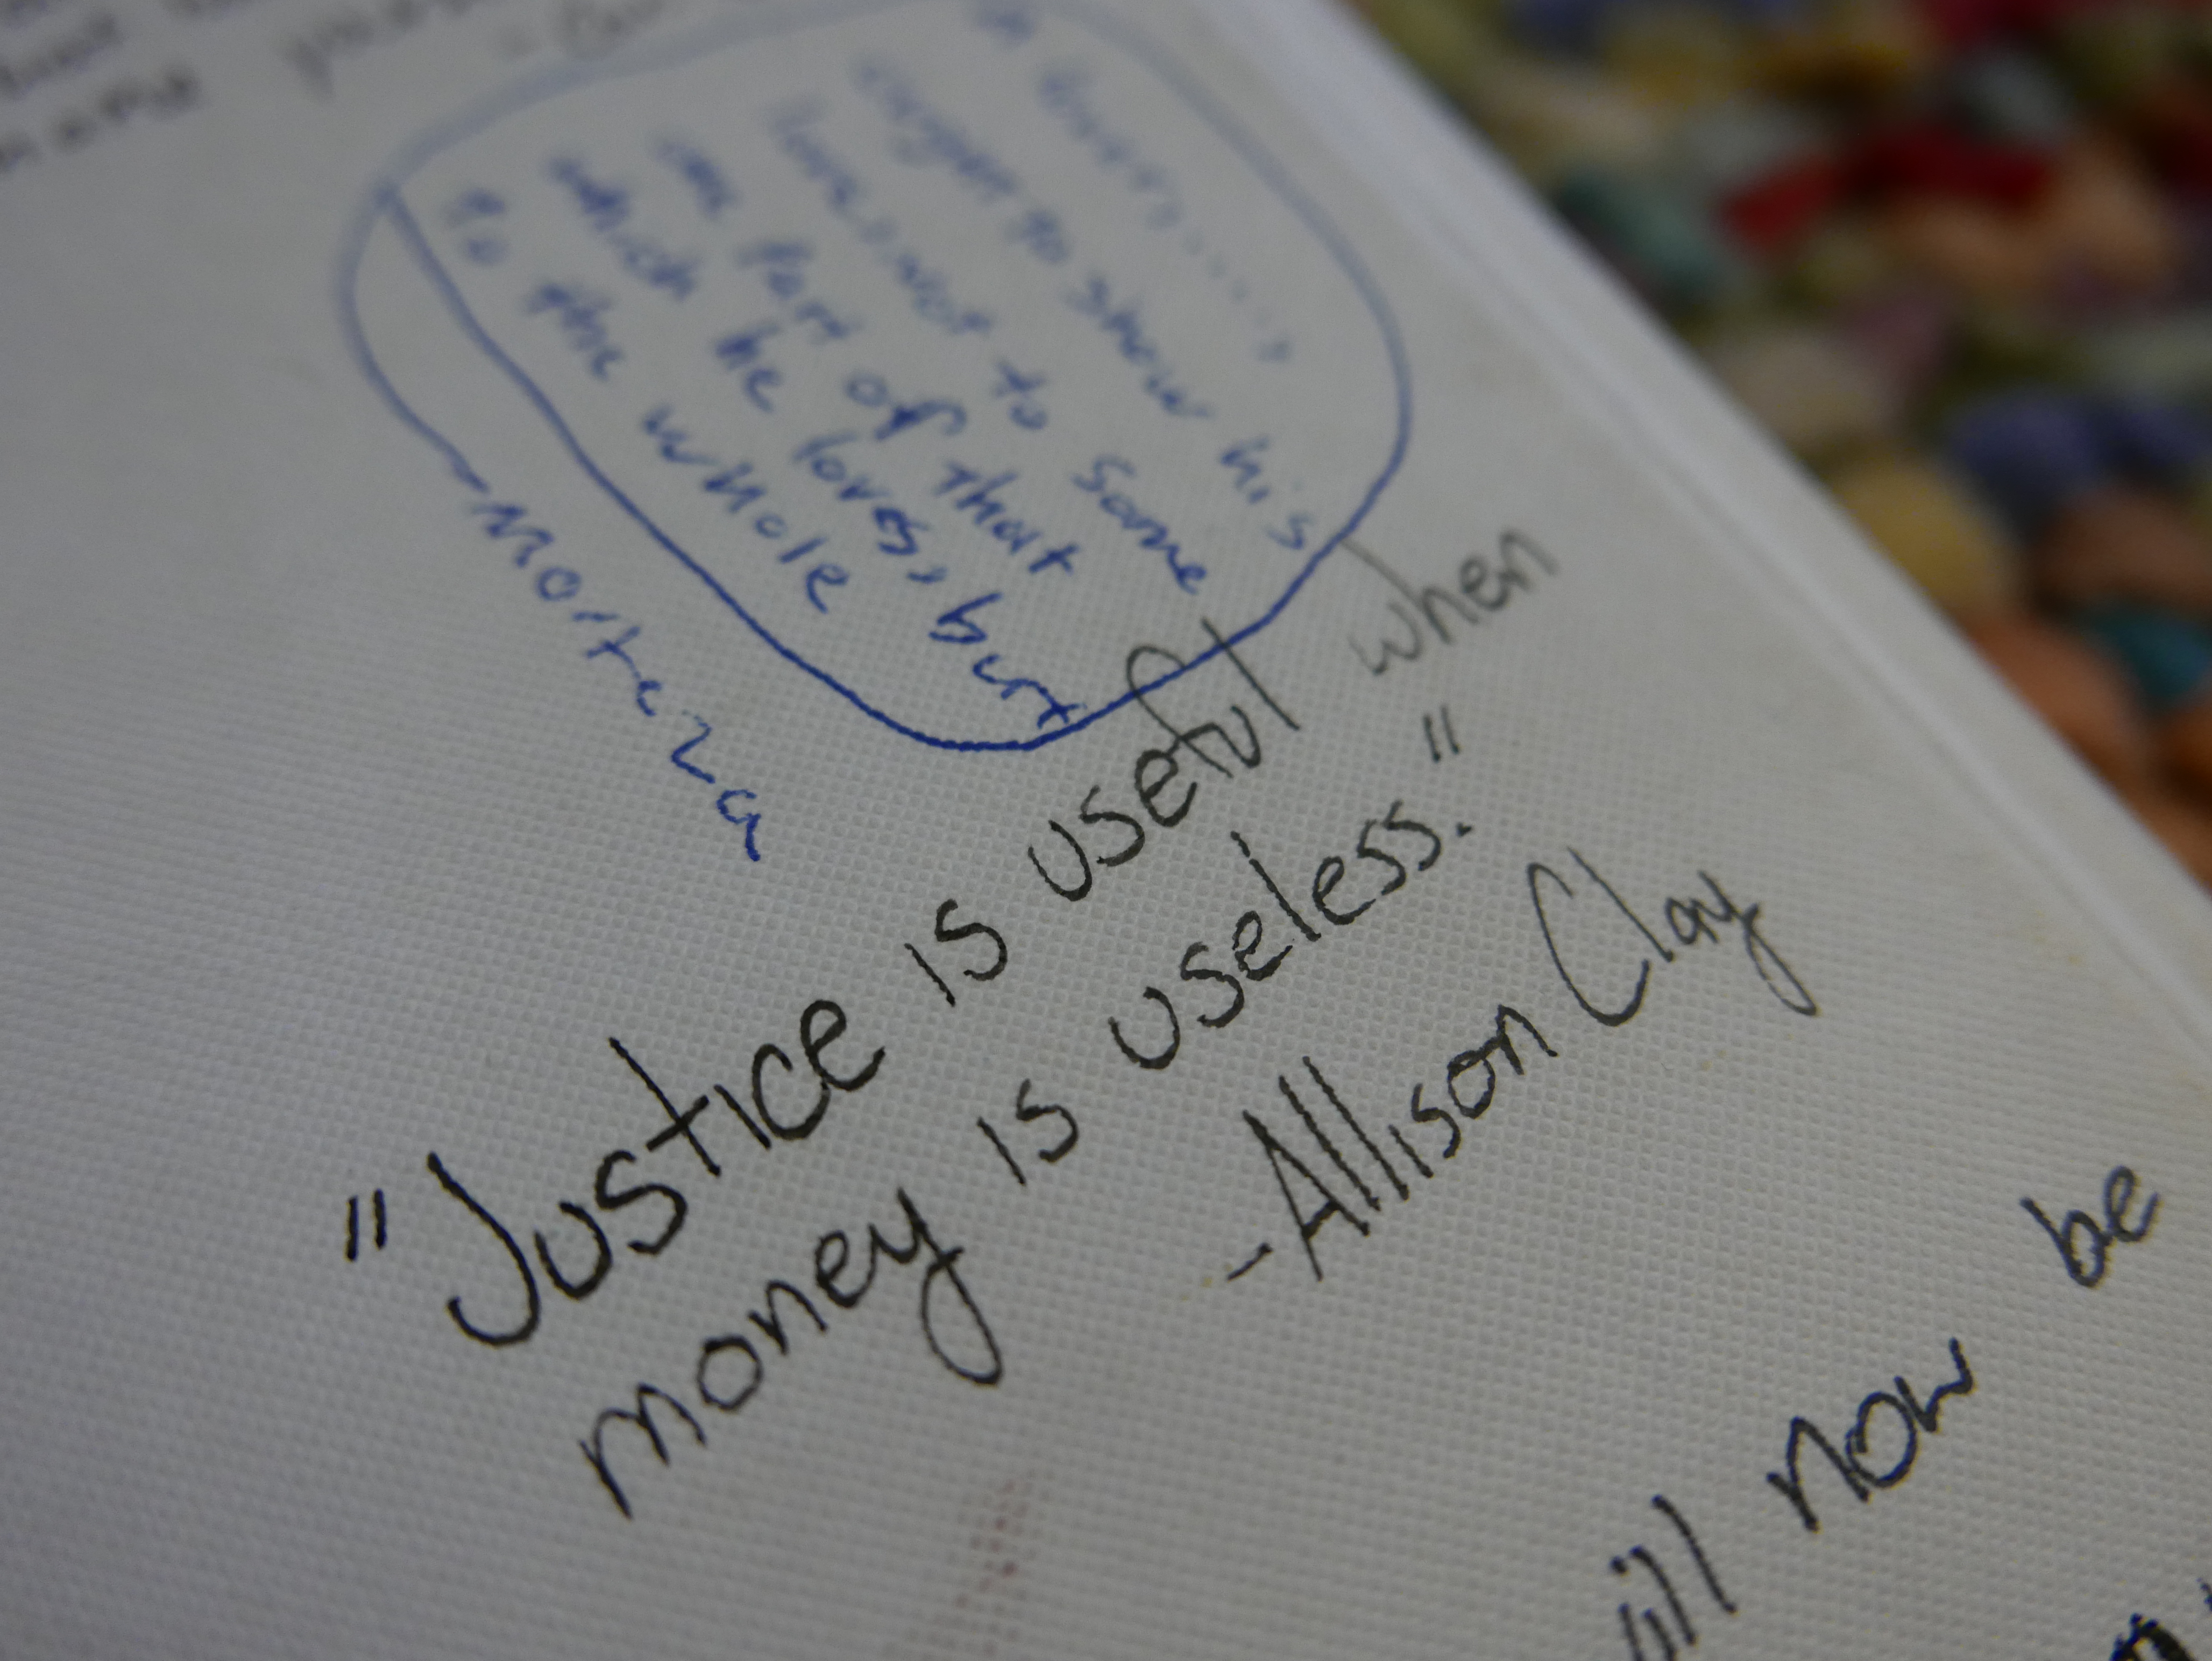 more
A lover
eager to show his
love, not to some
one part of that
which he loves, but
to the whole
-Morteza
"Justice is useful when
money is useless."
-Allison Clay
will now be